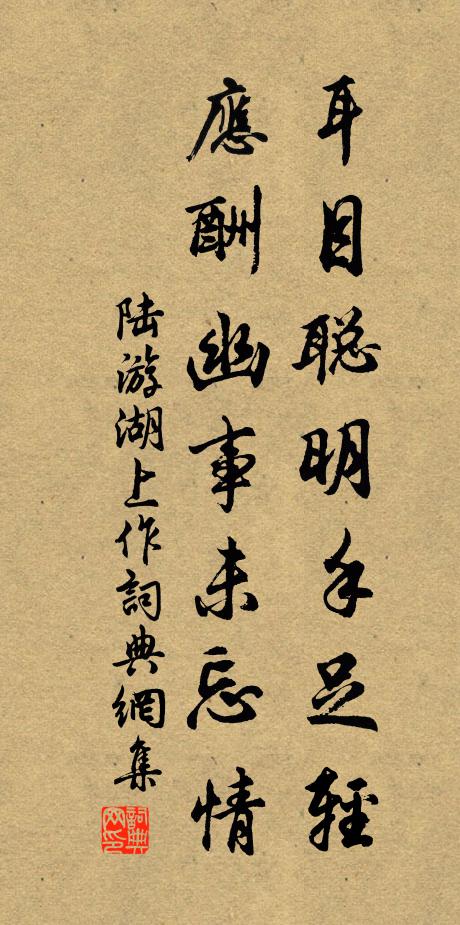 耳目聪明手足輕
應酬幽事未忘情
陆游湖上作詞典網集
詞典网印